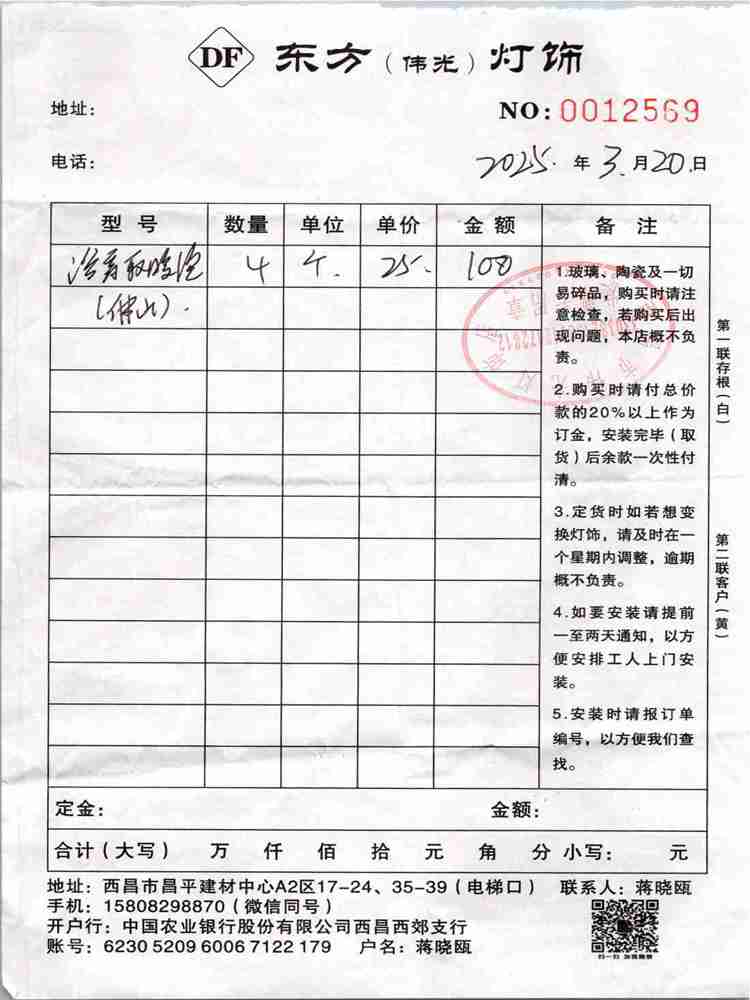 DF 东方(伟光)灯饰
地址:
NO: 0012569
电话:
2025. 年 3 月 20 日
型号 数量 单位 单价 金额 备注
4 个. 25. 100
(佛山).
1.玻璃、陶瓷及一切
易碎品,购买时请注
意检查,若购买后出
现问题,本店概不负
责。
2.购买时请付总价
款的20%以上作为
订金,安装完毕(取
货)后余款一次性付
清。
3.定货时如若想变
换灯饰,请及时在一
个星期内调整,逾期
概不负责。
4.如要安装请提前
一至两天通知,以方
便安排工人上门安
装。
5.安装时请报订单
编号,以方便我们查
找。
第一联存根(白)
第二联客户(黄)
定金: 金额:
合计(大写) 万 仟 佰 拾 元 角 分 小写: 元
地址:西昌市昌平建材中心A2区17-24、35-39(电梯口) 联系人:蒋晓瓯
手机:15808298870(微信同号)
开户行:中国农业银行股份有限公司西昌西郊支行
账号:6230 5209 6006 7122 179 户名:蒋晓瓯